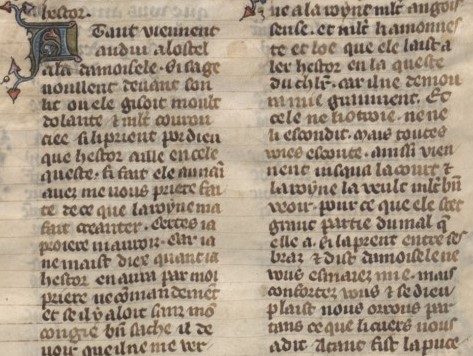 hestor.
A Taut viennent
andui a lostel
a la damoisele. Si sage
noullent deuant son
lit ou ele gisoit moult
dolante & mlt courou
ciee si li prient por dieu
que hestor aille en cele
queste. si fait ele aussi
auez me uous priere fai
te de ce que la royne ma
fait creanter. Certes ia
proiere ni auroit. Car ia
ne mait diex quant ia
hestor en aura par moi
priere ne comandement
et se il y aloit sanz mo
congie bn sache il de
uoir que il ne me ver
ne a la royne mlt angois
seuse. et mlt hamonnes
te et loe que ele laist a
ler hestor en la queste
du chlr. car il ne demou
ra mie gaument. Et
cele ne li otroie. ne ne
li escondit. mais toutes
uoies escoute. ainssi vien
nent iusqua la court &
la royne la veult mlt bn
veoir. pour ce que ele set
grant partie du mal q
elle a. si la prent entre ses
braz & dist damoisele ne
vous esmaiez mie. mais
confortez vous & se dieu
plaist nous orrons par
tans ce que li cuers uous
adit. Atant fist la puce